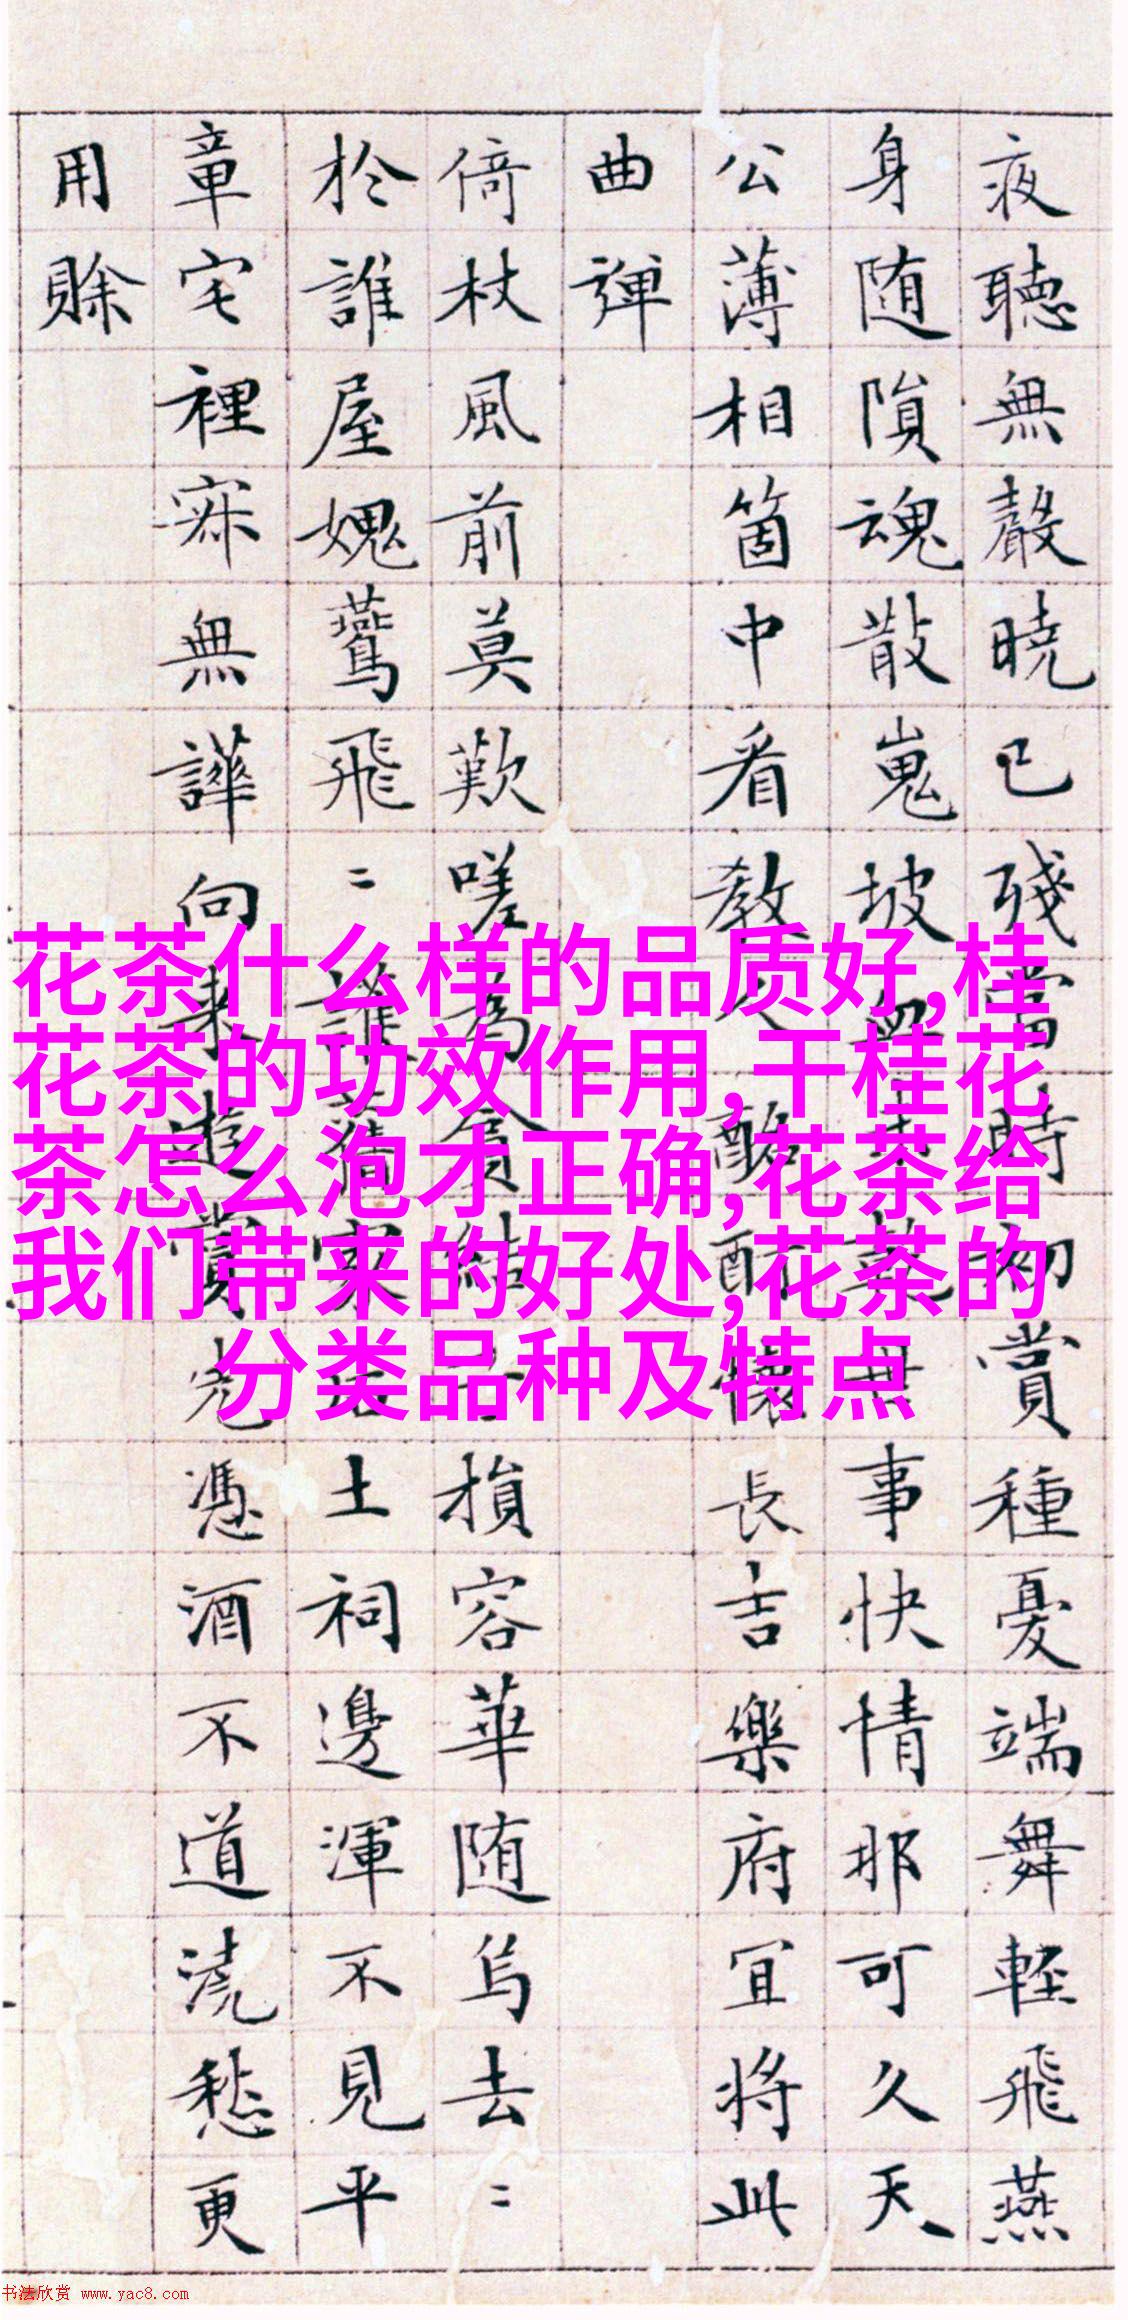 夜聽無聲曉已殘當時初賞種憂端舞輕飛燕
身随隕魂散嵬坡血世事快情那可久天
公薄相箇中看教人酩酊懷長吉樂府宜將此
曲彈
倚杖風前莫歎嗟為貪結損容華随烏去〻
於誰屋媿鷰飛〻誰舊家土祠邊渾不見平
章宅裡寂無譁向來遊賞光憑酒不道澆愁更
用賒
花茶什么样的品质好,桂
花茶的功效作用,干桂花
茶怎么泡才正确,花茶给
我们带来的好处,花茶的
分类品种及特点
书法欣赏 www.yac8.com